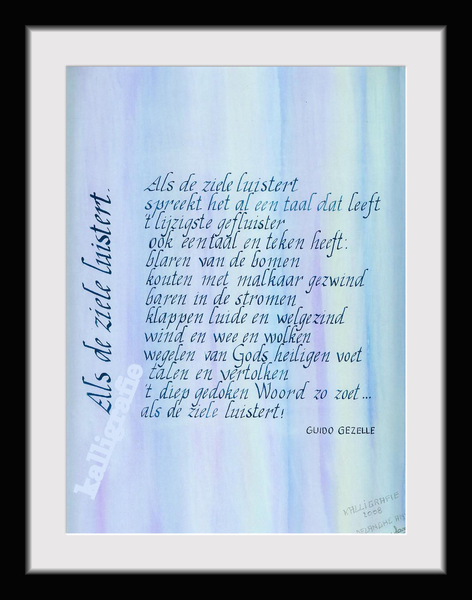 Als de ziele luistert.
Als de ziele luistert
spreekt het al een taal dat leeft
't lijzigste gefluister
ook een taal en teken heeft:
blaren van de bomen
kouten met malkaar gezwind
baren in de stromen
klappen luide en welgezind
wind en wee en wolken
wegelen van Gods heiligen voet
talen en vertolken
't diep gedoken Woord zo zoet...
als de ziele luistert!
GUIDO GEZELLE
kalligrafie
KALLIGRAFIE
2008